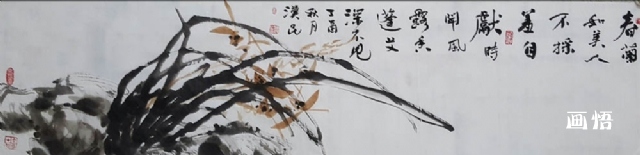 春蘭
如美人
不採
羞自
獻時
聞風
露香
蓬艾
深不見
丁酉
秋月
画悟